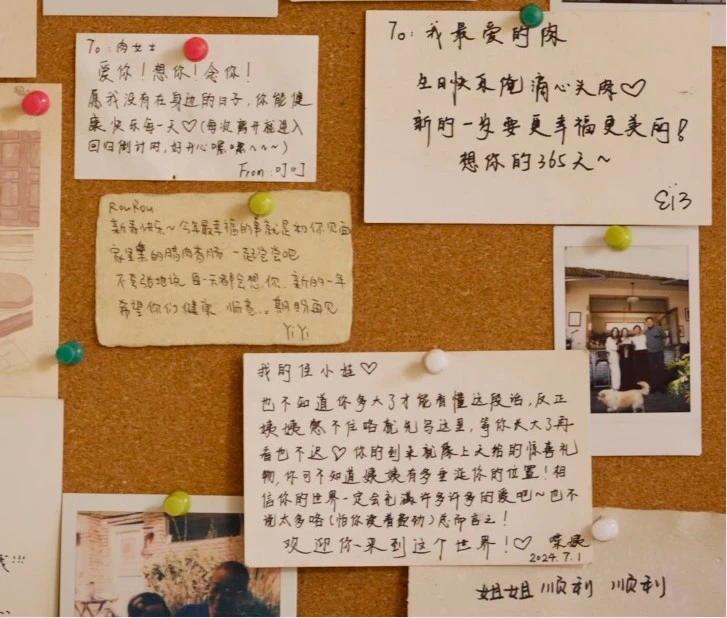 To: 肉女士
爱你！想你！念你！
愿我没有在身边的日子，你能健
康快乐每一天♡(每次离开就进入
回归倒计时，好开心嘿嘿~~~)
From:叮叮
To: 我最爱的肉
生日快乐俺滴心头肉♡
新的一岁要更幸福更美丽！
想你的365天~
RouRou
新春快乐~今年最幸福的事就是和你见面
家里的腊肉香肠 一起尝尝吧
不夸张地说 每一天都会想你 新的一年
希望你们健康 惬意.。期盼再见
YiYi
我的任小娃♡
也不知道你多大了才能看懂这段话，反正
姨姨憋不住咯就先写这里，等你长大了再
看也不迟♡你的到来就像上天给的惊喜礼
物，你可不知道姨姨有多垂涎你的位置！相
信你的世界一定会充满许多许多的爱吧~也不
说太多咯(怕你读着费劲)总而言之！
欢迎你来到这个世界！♡ 姨
2024.7.1
姐姐顺利 顺利